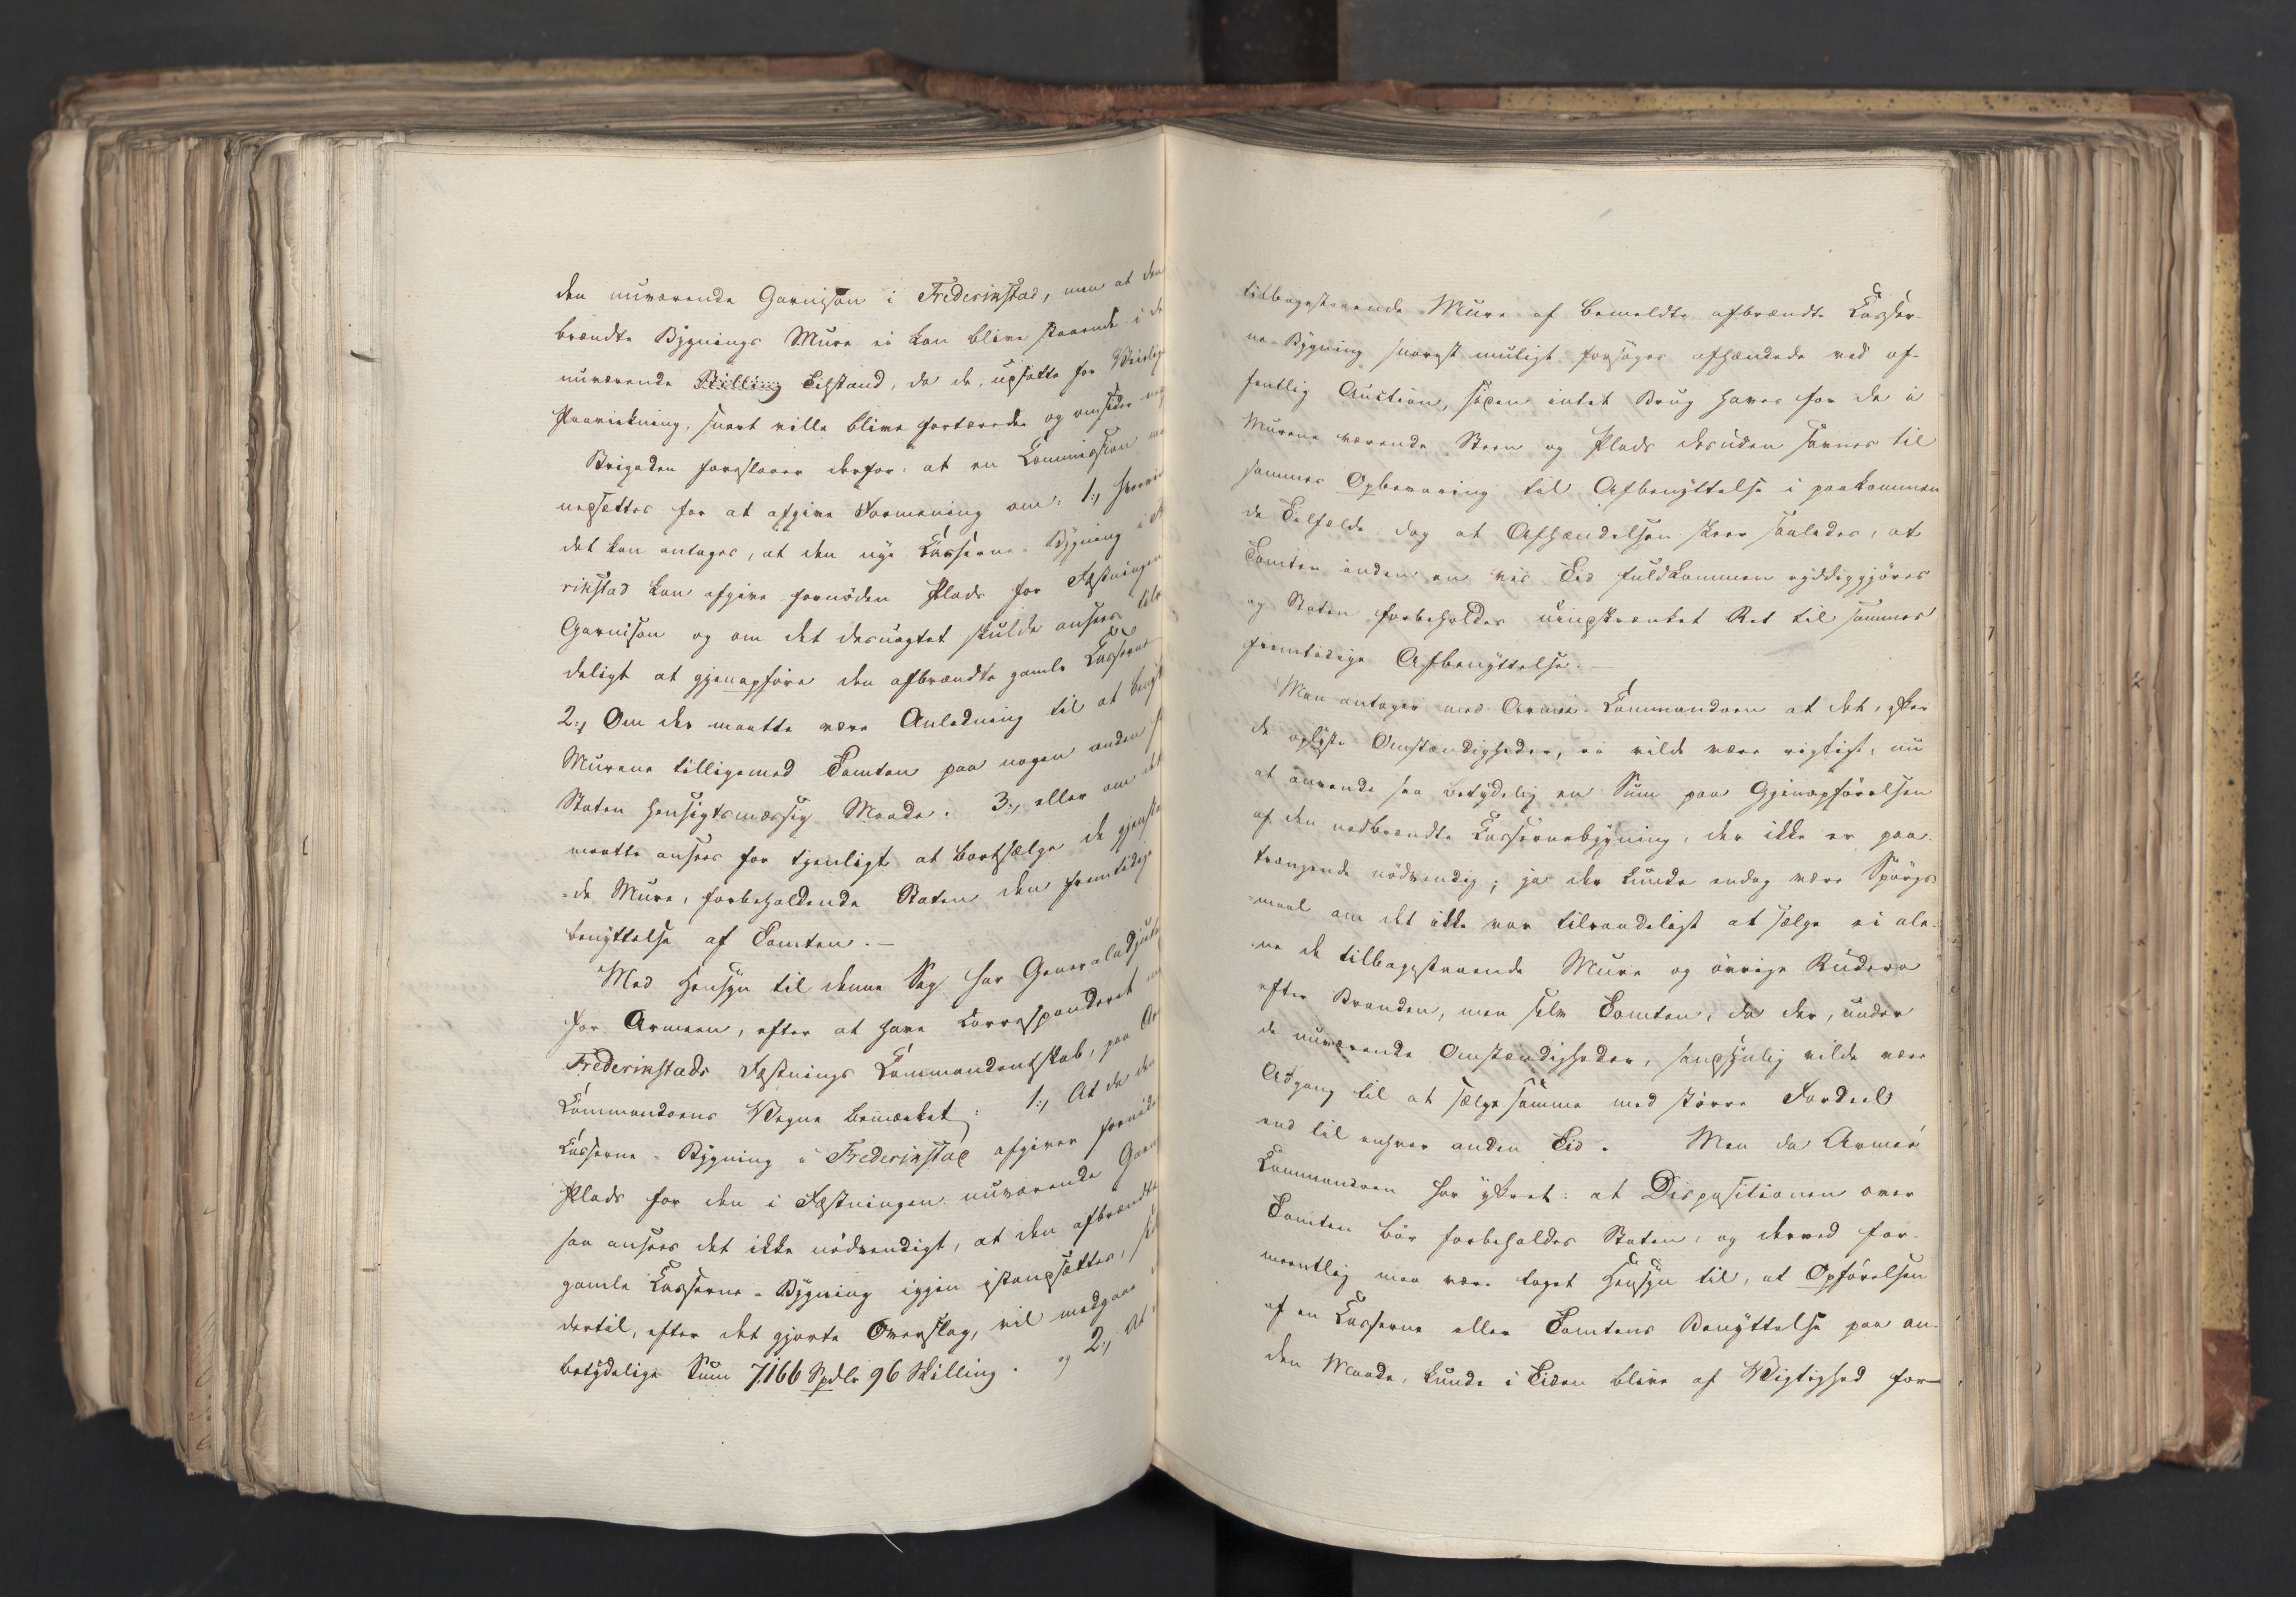 den nuværende Garnison i Frederikstad, men at den
brændte Bygnings Mure ei kan blive staaende i de
nuværende Tilstand, da de, udsatte for Veirlig
Paavirkning, snart ville blive fortærede og omsider
Brigaden foreslaaer derfor: at en Commission
nedsættes for at afgive Formening om: 1:, hvorvi
det kan antages, at den nye Casserne-Bygning i
rikstad kan afgive fornöden Plads for Fæstningens
Garnison og om det desuagtet skulde ansees tilra
deligt at gjenopföre den afbrændte gamle Casserne
2:, Om der maatte være Anledning til at beny
Murene tilligemed Tomten paa nogen anden for
Staten hensigtsmæssig Maade. 3:, eller om det
maatte ansees for tjenligt at bortsælge de gjensta
de Mure, forbeholdende Staten den fremtidige
benyttelse af Tomten.-
Med Hensyn til denne Sag har Generaladjuta
for Armeen, efter at have corresponderet
Frederikstads Fæstnings Commandantskab, paa Ar
Commandoens Vegne bemærket: 1:, At da den
Casserne-Bygning i Frederikstad afgiver fornöden
Plads for den i Fæstningen nuværende Garn
saa ansees det ikke nödvendigt, at den afbrændte
gamle Casserne-Bygning igjen istandsættes,
dertil, efter det gjorte Overslag, vil medgaae
betydelige Sum 7,166 Spdlr 96 Skilling. og 2:, At
tilbagestaaende Mure af bemeldte afbrændte Casser-
ne-Bygning snarest muligt forsöges afhændede ved of-
fentlig Auction, siden intet Brug haves for de i
Murene værende Steen og Plads desuden savnes til
sammes Opbevaring til Afbenyttelse i paakommen
de Tilfælde, dog at Afhændelsen skeer saaledes, at
Tomten inden en vis Tid fuldkommen ryddiggjöres
og Staten forbeholdes uindskrænket Ret til sammes
fremtidige Afbenyttelse.-
Man antager med Armee-Commandoen at det, efter
de oplyste Omstændigheder, ei vilde være rigtigt, nu
at anvende saa betydelig en Sum paa Gjenopförelsen
af den nedbrændte Cassernebygning, der ikke er paa-
trængende nödvendig; ja der kunde endog være Spörgs-
maal om det ikke var tilraadeligt at sælge ei ale-
ne de tilbagestaaende Mure og övrige Rudera
efter Branden, men selv Tomten, da der, under
de nuværende Omstændigheder, sandsynlig vilde være
Adgang til at sælge samme med större Fordeel
end til enhver anden Tid. Men da Armee
Commandoen har yttret: at Dispositionen over
Tomten bör forbeholdes Staten, og derved for-
meentlig maa være taget Hensyn til, at Opförelsen
af en Casserne eller Tomtens Benyttelse paa an-
den Maade, kunde i Tiden blive af Vigtighed for